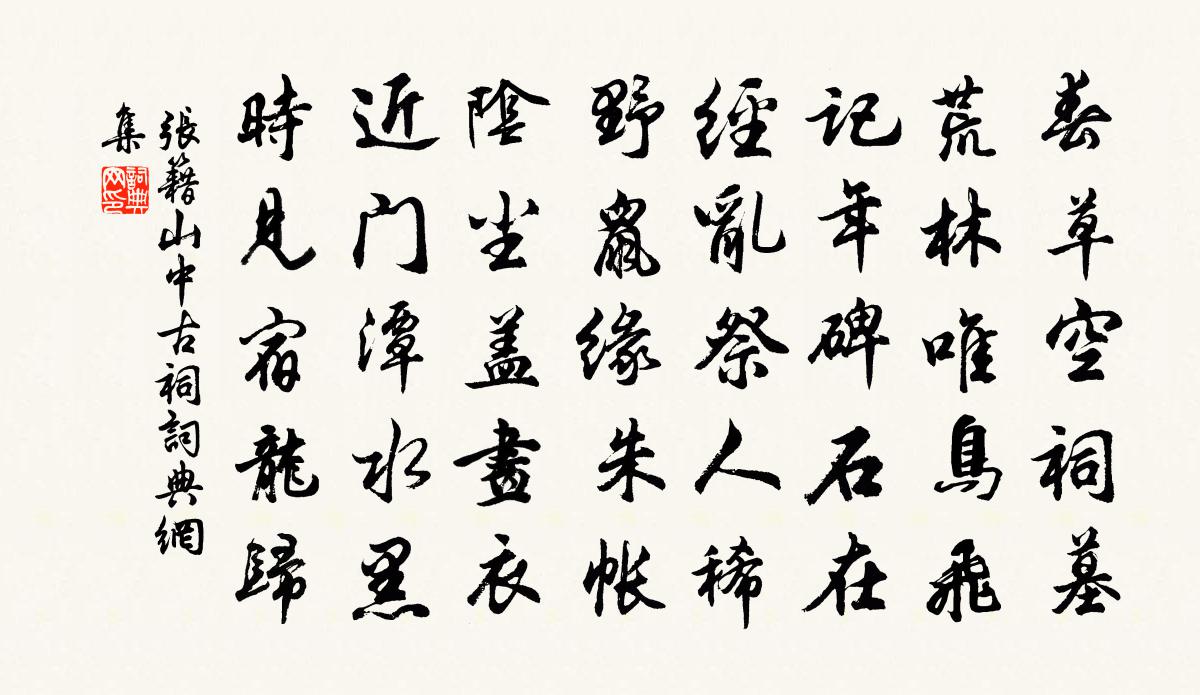 春草空祠墓
荒林唯鳥飛
記年碑石在
經亂祭人稀
野鼠緣朱帳
陰尘盖畫衣
近門潭水黑
時見宿龍歸
張籍山中古祠詞典網
集
詞典网印